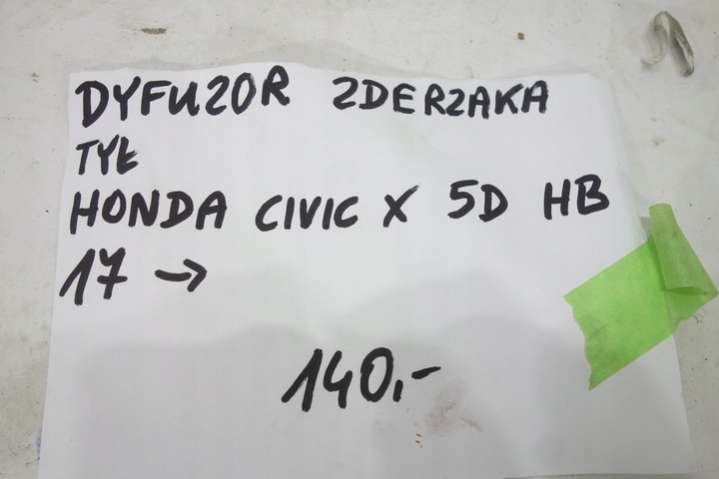 DYFUZOR ZDERZAKA
TYŁ
HONDA CIVIC X 5D HB
17 →
140,-